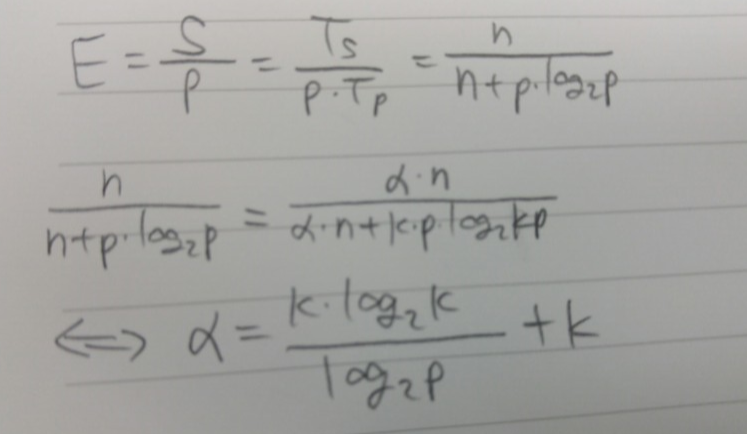 E = S/p = Ts/(p·Tp) = n/(n+p·log₂p)
n/(n+p·log₂p) = α·n/(α·n+k·p·log₂kp)
⟺ α = (k·log₂k)/(log₂p) + k